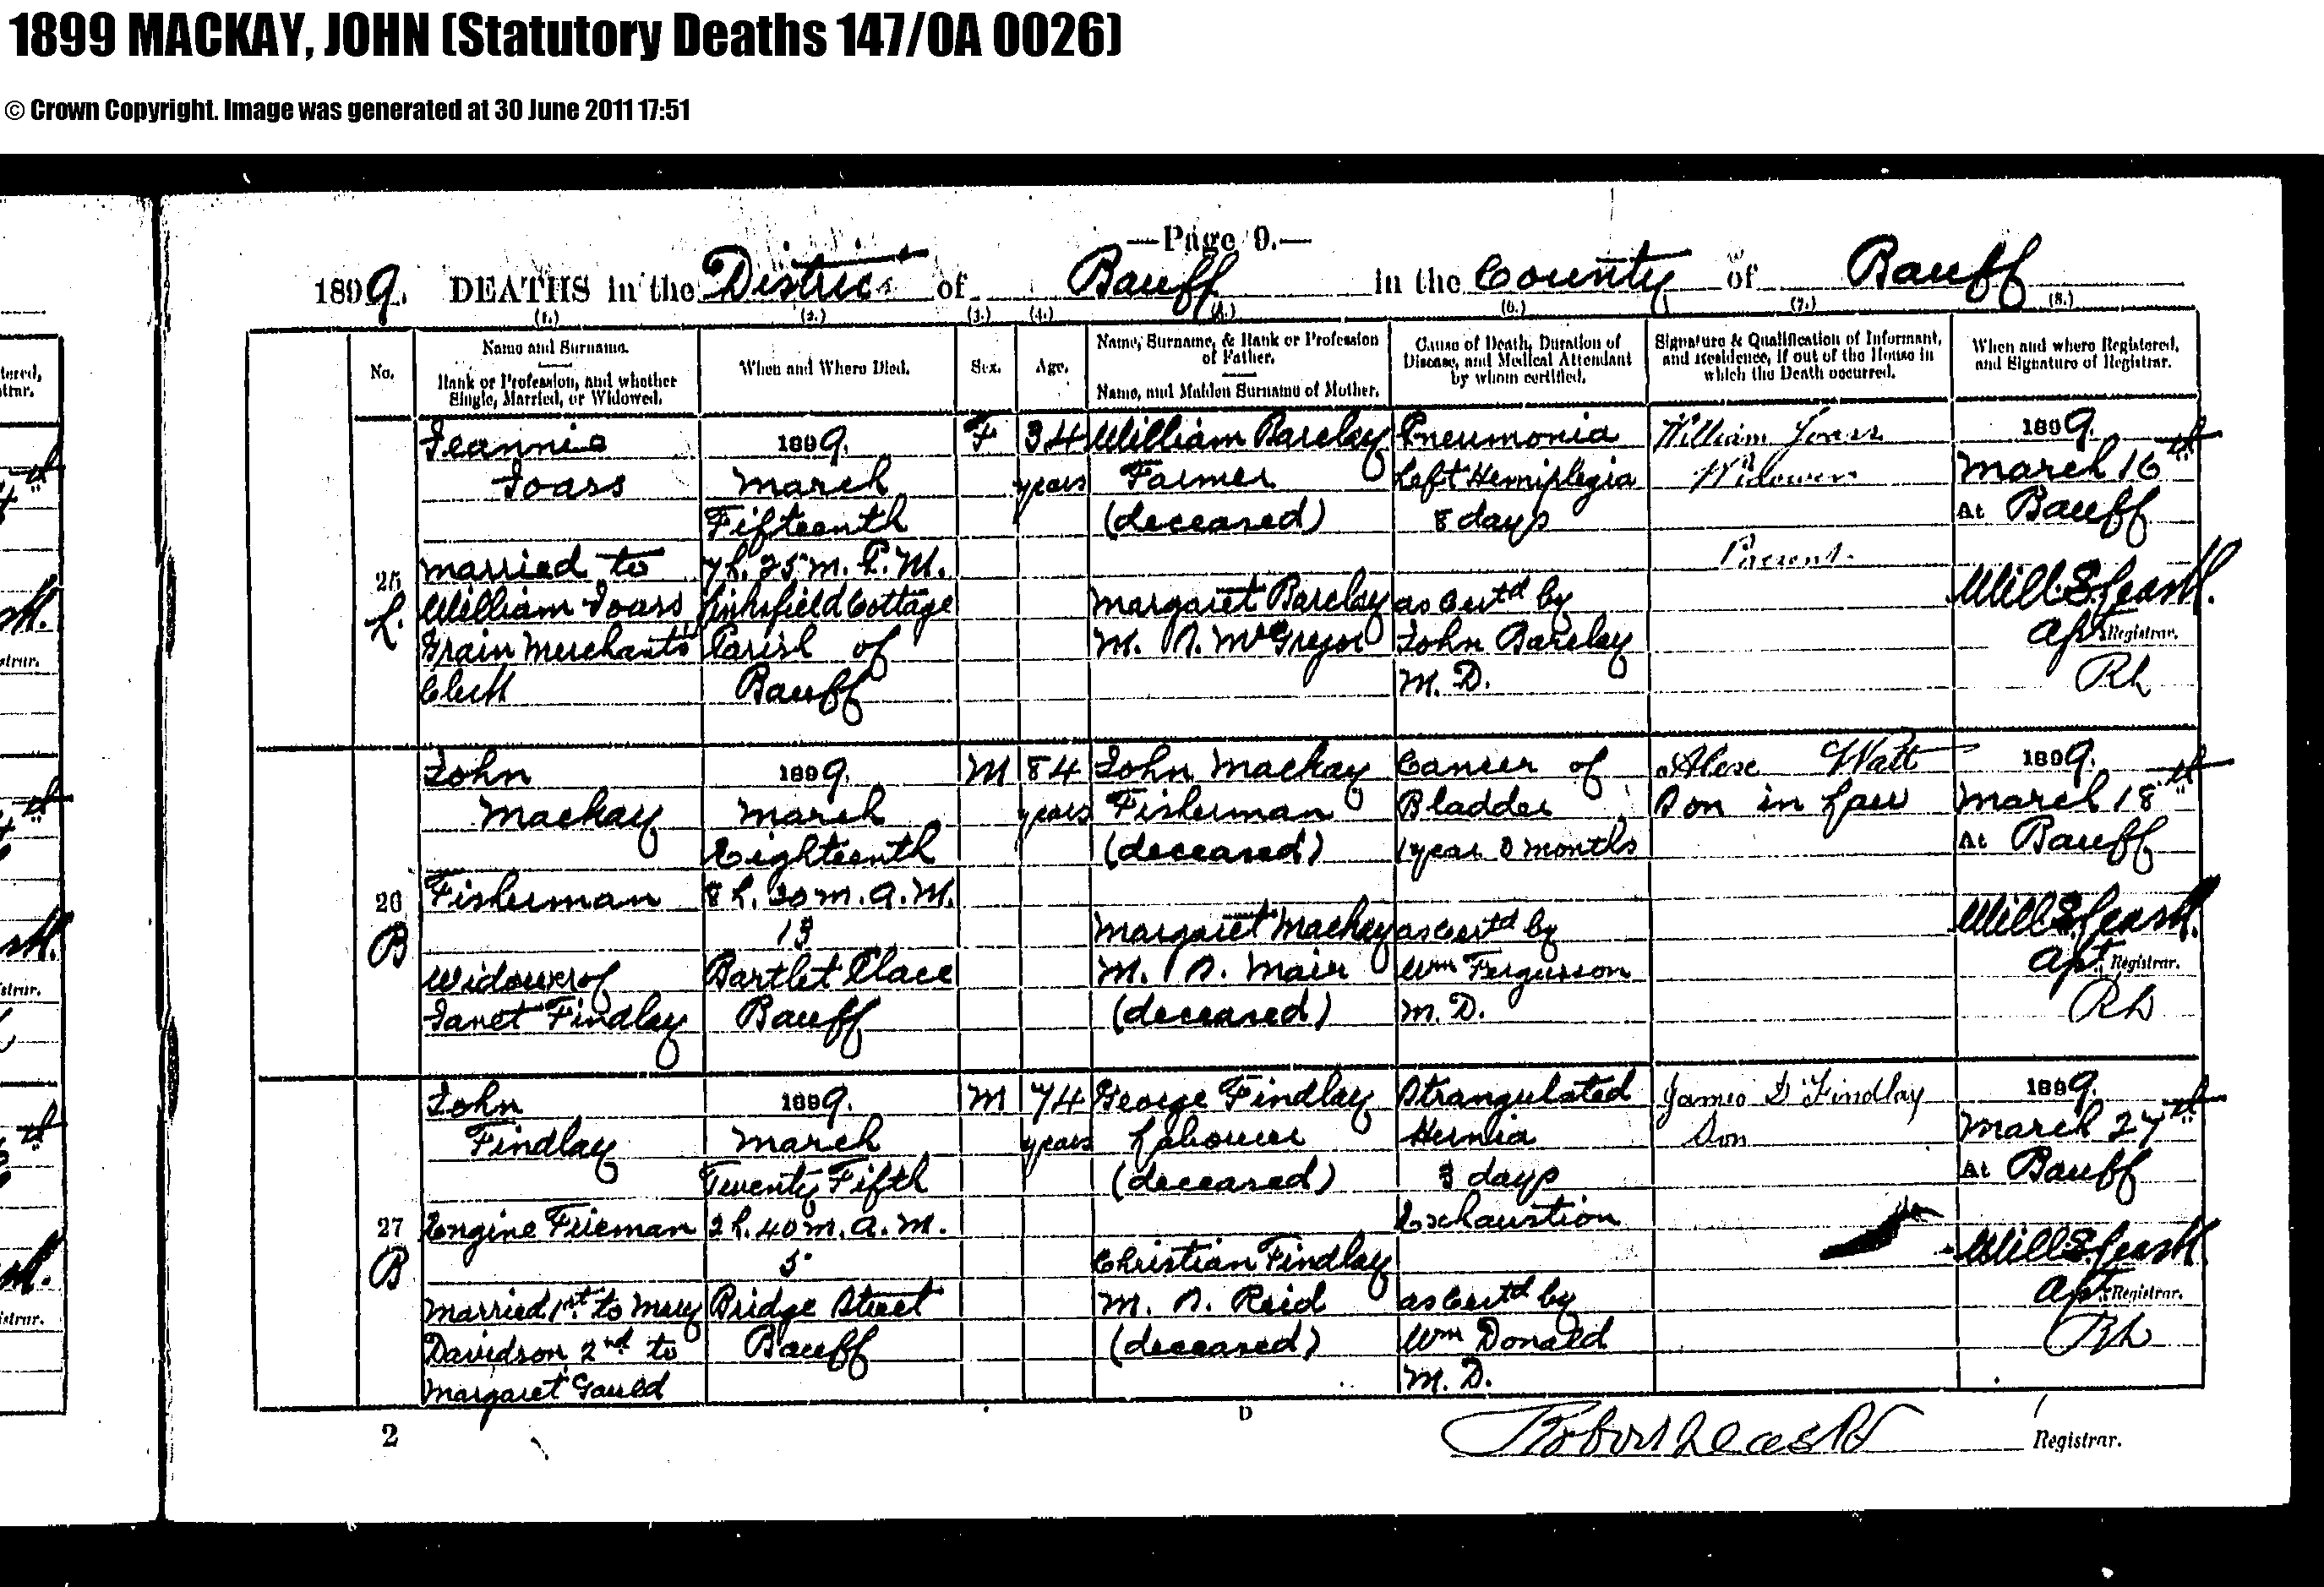 1899 MACKAY, JOHN (Statutory Deaths 147/0A 0026)
© Crown Copyright. Image was generated at 30 June 2011 17:51
—Page 9.—
1899. DEATHS in the District of Banff in the County of Banff
(1.) (2.) (3.) (4.) (5.) (6.) (7.) (8.)
No.
Name and Surname.
Rank or Profession, and whether
Single, Married, or Widowed.
When and Where Died.
Sex.
Age.
Name, Surname, & Rank or Profession
of Father.
Name, and Maiden Surname of Mother.
Cause of Death, Duration of
Disease, and Medical Attendant
by whom certified.
Signature & Qualification of Informant,
and Residence, if out of the House in
which the Death occurred.
When and where Registered,
and Signature of Registrar.
25
L.
Jeannie
Joass
married to
William Joass
Grain Merchant's
Clerk
1899.
March
Fifteenth
7h. 25m. P.M.
Linksfield Cottage
Parish of
Banff
F
34
years
William Barclay
Farmer
(deceased)
Margaret Barclay
M. S. McGregor
Pneumonia
Left Hemiplegia
8 days
as Certd by
John Barclay
M.D.
William Joass
Widower
Present.
1899.
March 16th
At Banff
Will. S. Leask.
Asst. Registrar.
RL
26
B
John
Mackay
Fisherman
Widower of
Janet Findlay
1899.
March
Eighteenth
8h. 30m. A.M.
13
Bartlet Place
Banff
M
84
years
John Mackay
Fisherman
(deceased)
Margaret Mackay
M. S. Mair
(deceased)
Cancer of
Bladder
1 year months
as Certd by
Wm Fergusson
M.D.
Alexr Watt
Son in Law
1899.
March 18th
At Banff
Will. S. Leask.
Asst. Registrar.
RL
27
B
John
Findlay
Engine Fireman
Married 1st to Mary
Davidson 2nd to
Margaret Gauld
1899.
March
Twenty Fifth
2h. 40m. A.M.
5
Bridge Street
Banff
M
74
years
George Findlay
Labourer
(deceased)
Christian Findlay
M. S. Reid
(deceased)
Strangulated
Hernia
3 days
Exhaustion
as Certd by
Wm Donald
M.D.
James D Findlay
Son
1899.
March 27th
At Banff
Will. S. Leask.
Asst. Registrar.
RL
2
D
Robert Leask Registrar.